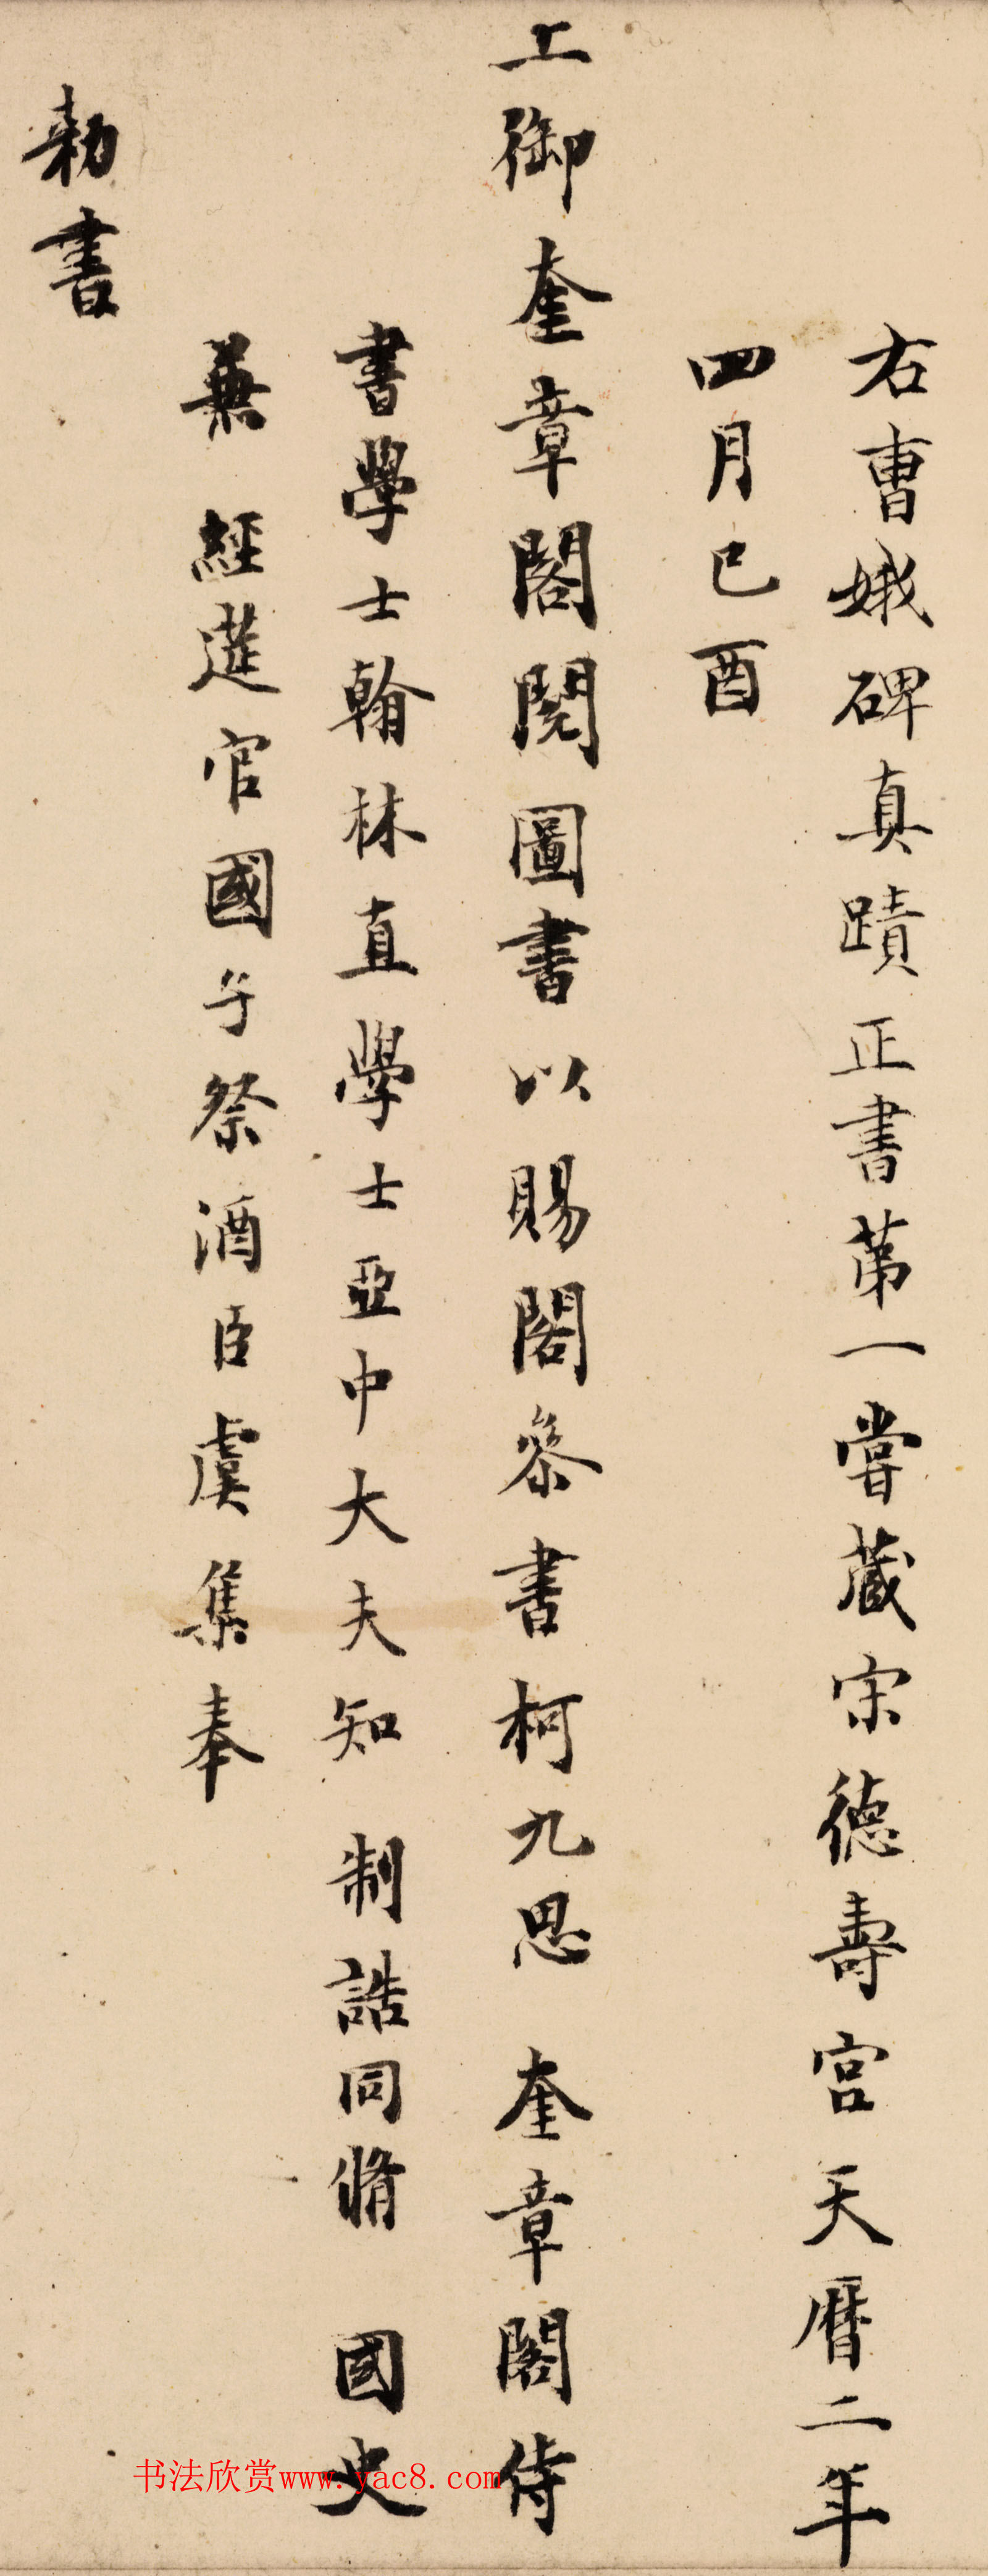 右曹娥碑真蹟正書第一嘗藏宋德壽宮天曆二年
四月己酉
上御奎章閣閱圖書以賜閣參書柯九思 奎章閣侍
書學士翰林直學士亞中大夫知 制誥同脩 國史
兼 經筵官國子祭酒臣虞集奉
勑書
书法欣赏www.yac8.com